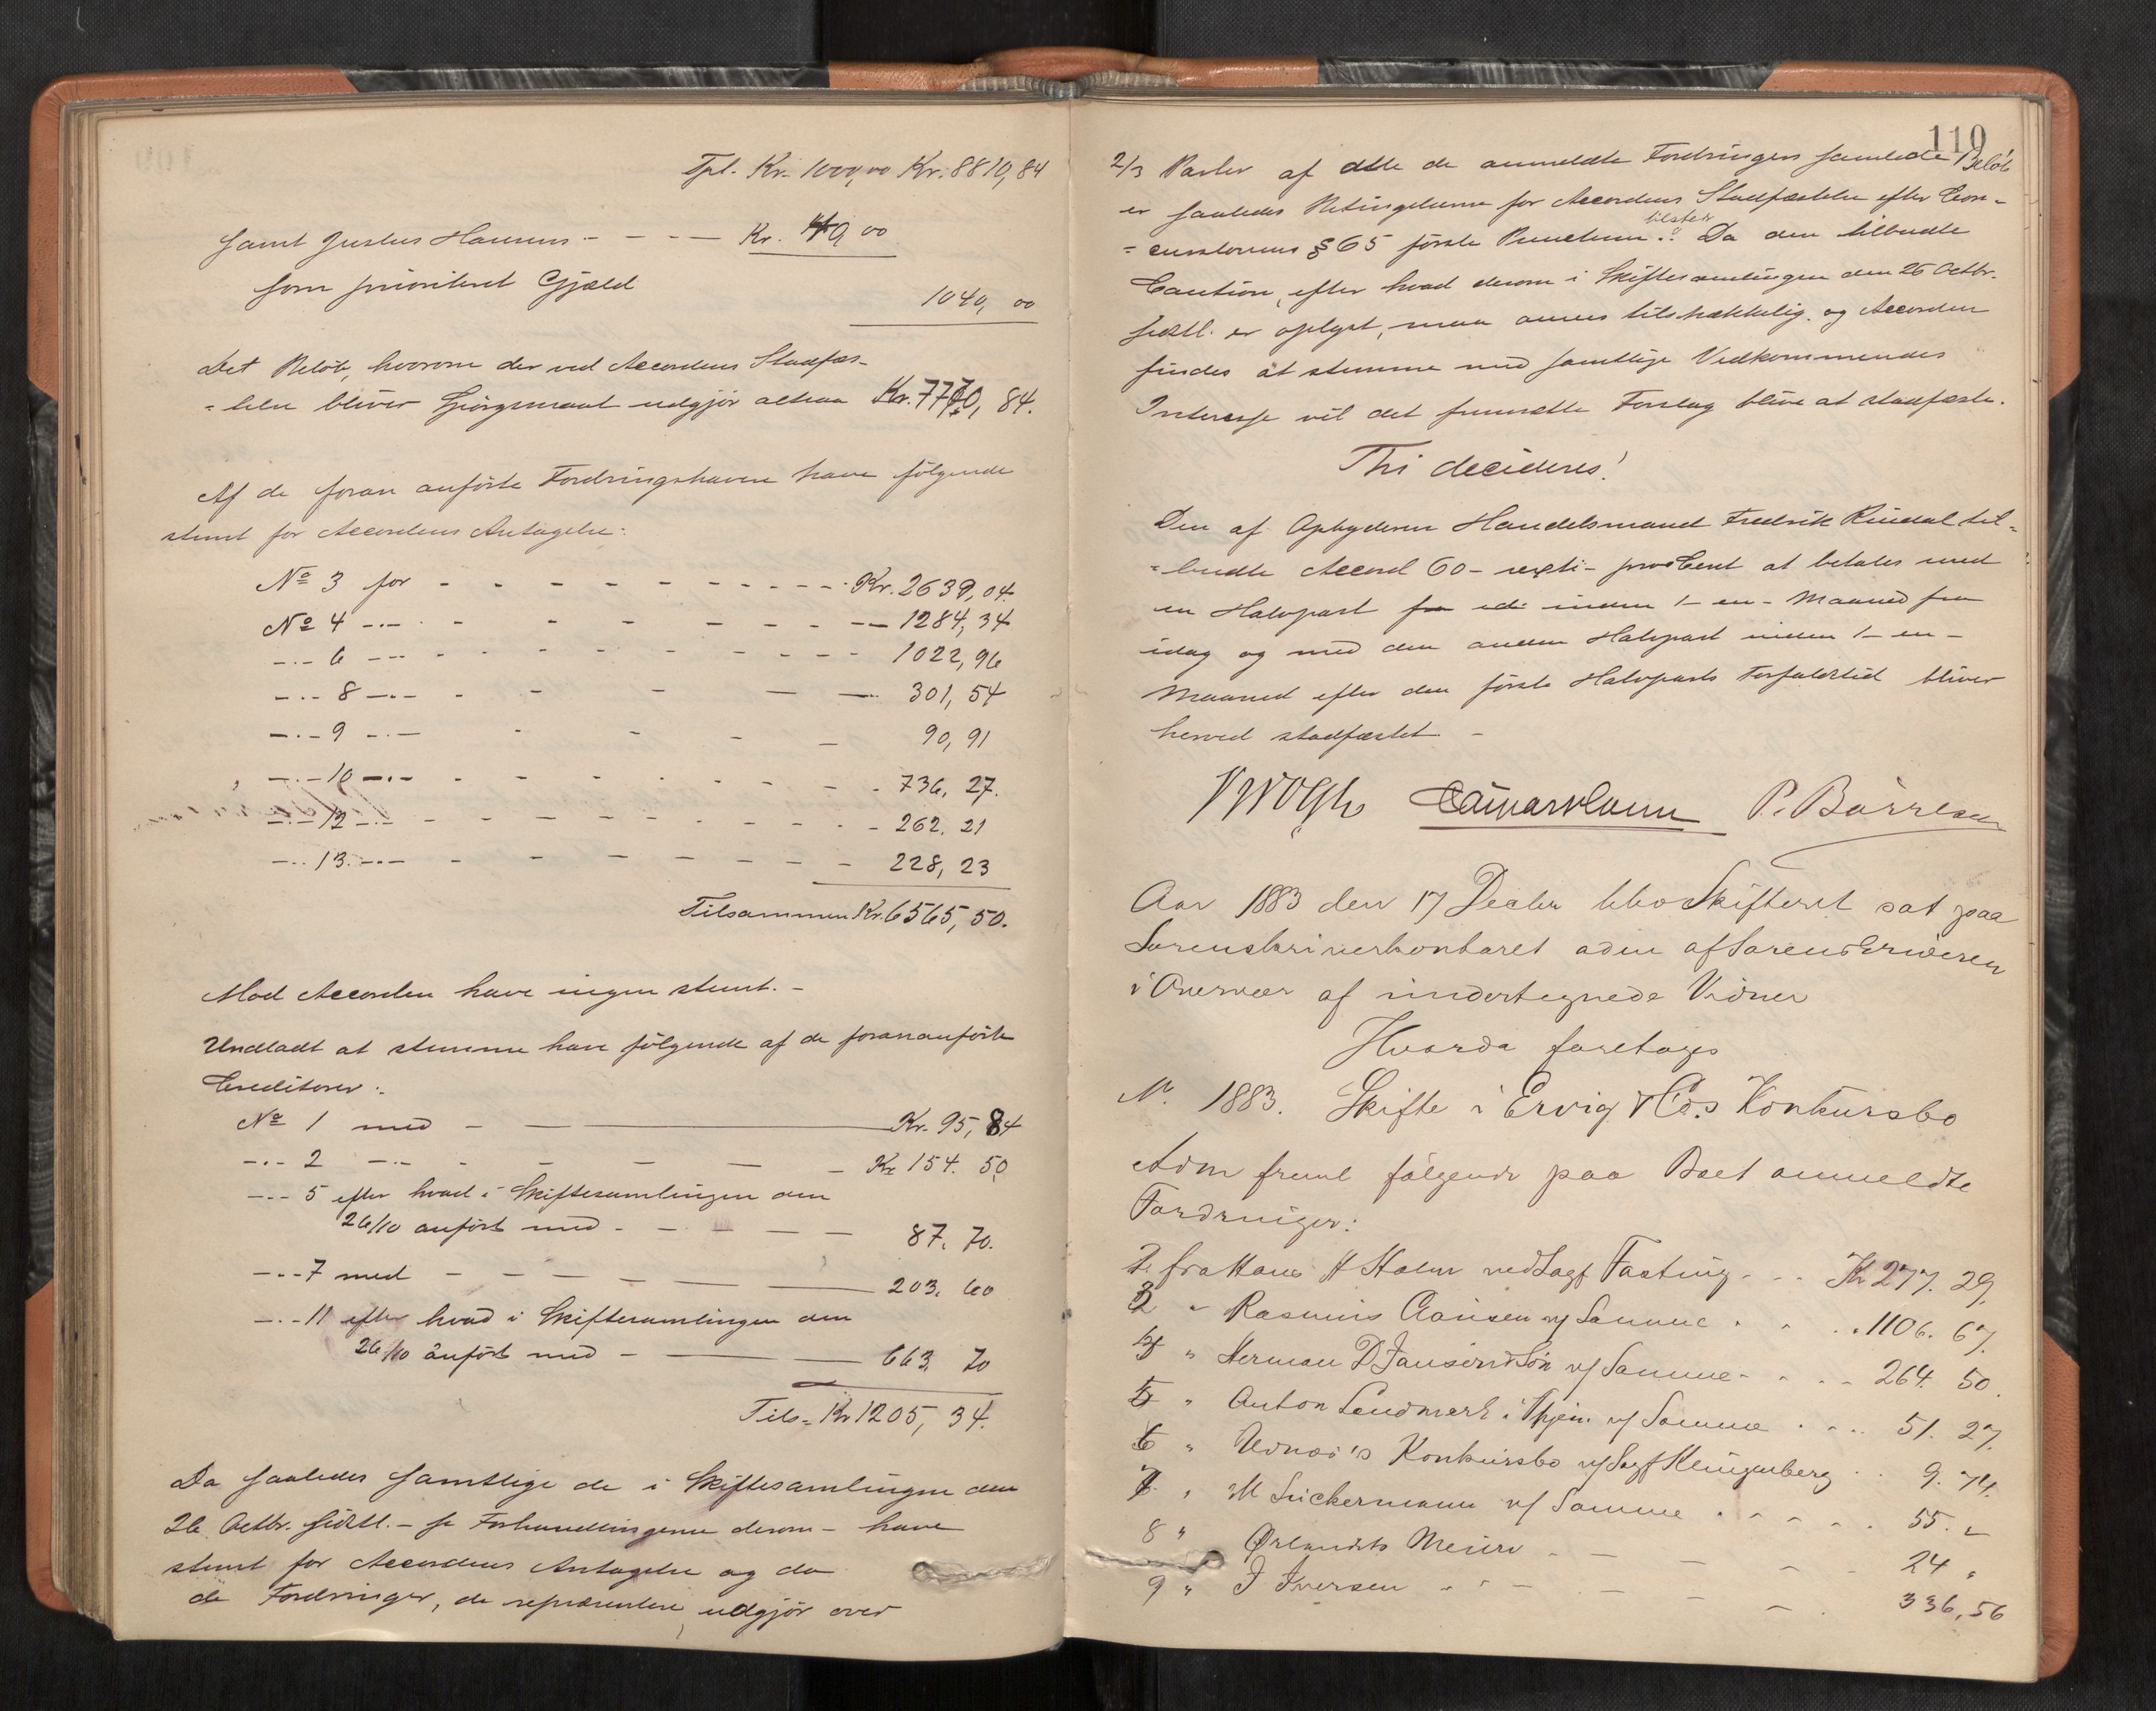 Tpt. Kr. 1000,00 Kr. 8810,84
samt Justus Hansens - - - - Kr. 40 00
som prioriteret Gjæld
1040, 00
Det Beløb, hvorom der ved Accordens Stadfæs-
telse bliver Spørgsmaal udgjør altsaa Kr. 7770, 84.
Af de foran anførte Fordringshavere have følgende
stemt for Accordens Antagelse:
No 3 for - - - - - - - - - Kr. 2639,04.
No 4 -.- - - - - - - 1284,34
-.- 6 -.- - - - - - - 1022,96
-.- 8 -.- - - - - 301,54
-.- 9 -.- - - - - 90,91
-.- 10 -.- - - - - - - 736, 27.
-.- 12 -.- - - - - - - 262. 21
-.- 13 -.- - - - - - - 228, 23
Tilsammen Kr. 6565, 50.
Mod Accorden have ingen stemt. -
Undladt at stemme have følgende af de forananførte
Creditorer:
No 1 med - - Kr. 95, 84
-.- 2 -.- - - - - Kr. 154. 50
-.- 5 efter hvad i Skiftesamlingen den
26/10 anført med - - - - - 87. 70.
-.- 7 med - - - - - 203. 60
-.- 11 efter hvad i Skiftesamlingen den
26/10 anført med - - 663. 70
Tils. Kr 1205, 34.
Da saaledes samtlige de i Skiftesamlingen den
26 Octbr. sidstl. - se Forhandlingerne derom - have
stemt for Accordens Antagelse og da
de Fordringer, de repræsentere, udgjør over
110
2/3 Parter af alle de anmeldte Fordringers samlede Beløb
er saaledes Betingelserne for Accordens Stadfæstelse efter Con-
tilstede
= curslovens § 65 første Punctum. Da den tilbudte
Caution, efter hvad derom i Skiftesamlingen den 26 Octbr.
sidstl. er oplyst, maa ansees tilstrækkelig, og Accorden
findes at stemme med samtlige Vedkommendes
Interesse vil det fremsatte Forslag blive at stadfæste.
Thi decideres!
Den af Opbyderen Handelsmand Fredrik Rindal til-
= budte Accord 60 - sexti - proCent at betales med
en Halvpart inden 1 - en - Maaned fra
idag og med den anden Halvpart inden 1 - en -
Maaned efter den første Halvparts Forfaldstid bliver
herved stadfæstet. -
P. Børresen
Aar 1883 den 17 Decbr blev Skifteret sat paa
Sorenskriverkontoret adm af Sorenskriveren
i Overvær af undertegnede Vidner
Hvorda foretoges
No. 1883. Skifte i Ervig & Co.s Konkursbo
Adm freml følgende paa Boet anmeldte
Fordringer:
fra Hans H Holm ved Sagf Fasting - - - Kr 277. 29.
" Rasmus Hansen v/ Samme . . . 1106. 67.
" Herman D Jansen & Søn v/ Samme - - - 264. 50.
5 " Anton Landmark i Thjem v/ Samme . . . 51. 27.
6 " Konkursbo v/ Sagf Klingenberg . . 9. 74.
7 " M Suckermann v/ Samme . . . . . 55. "
8 " Ørlandets Meieri - - - - 24 "
9 " J Iversen - - - - 336, 56